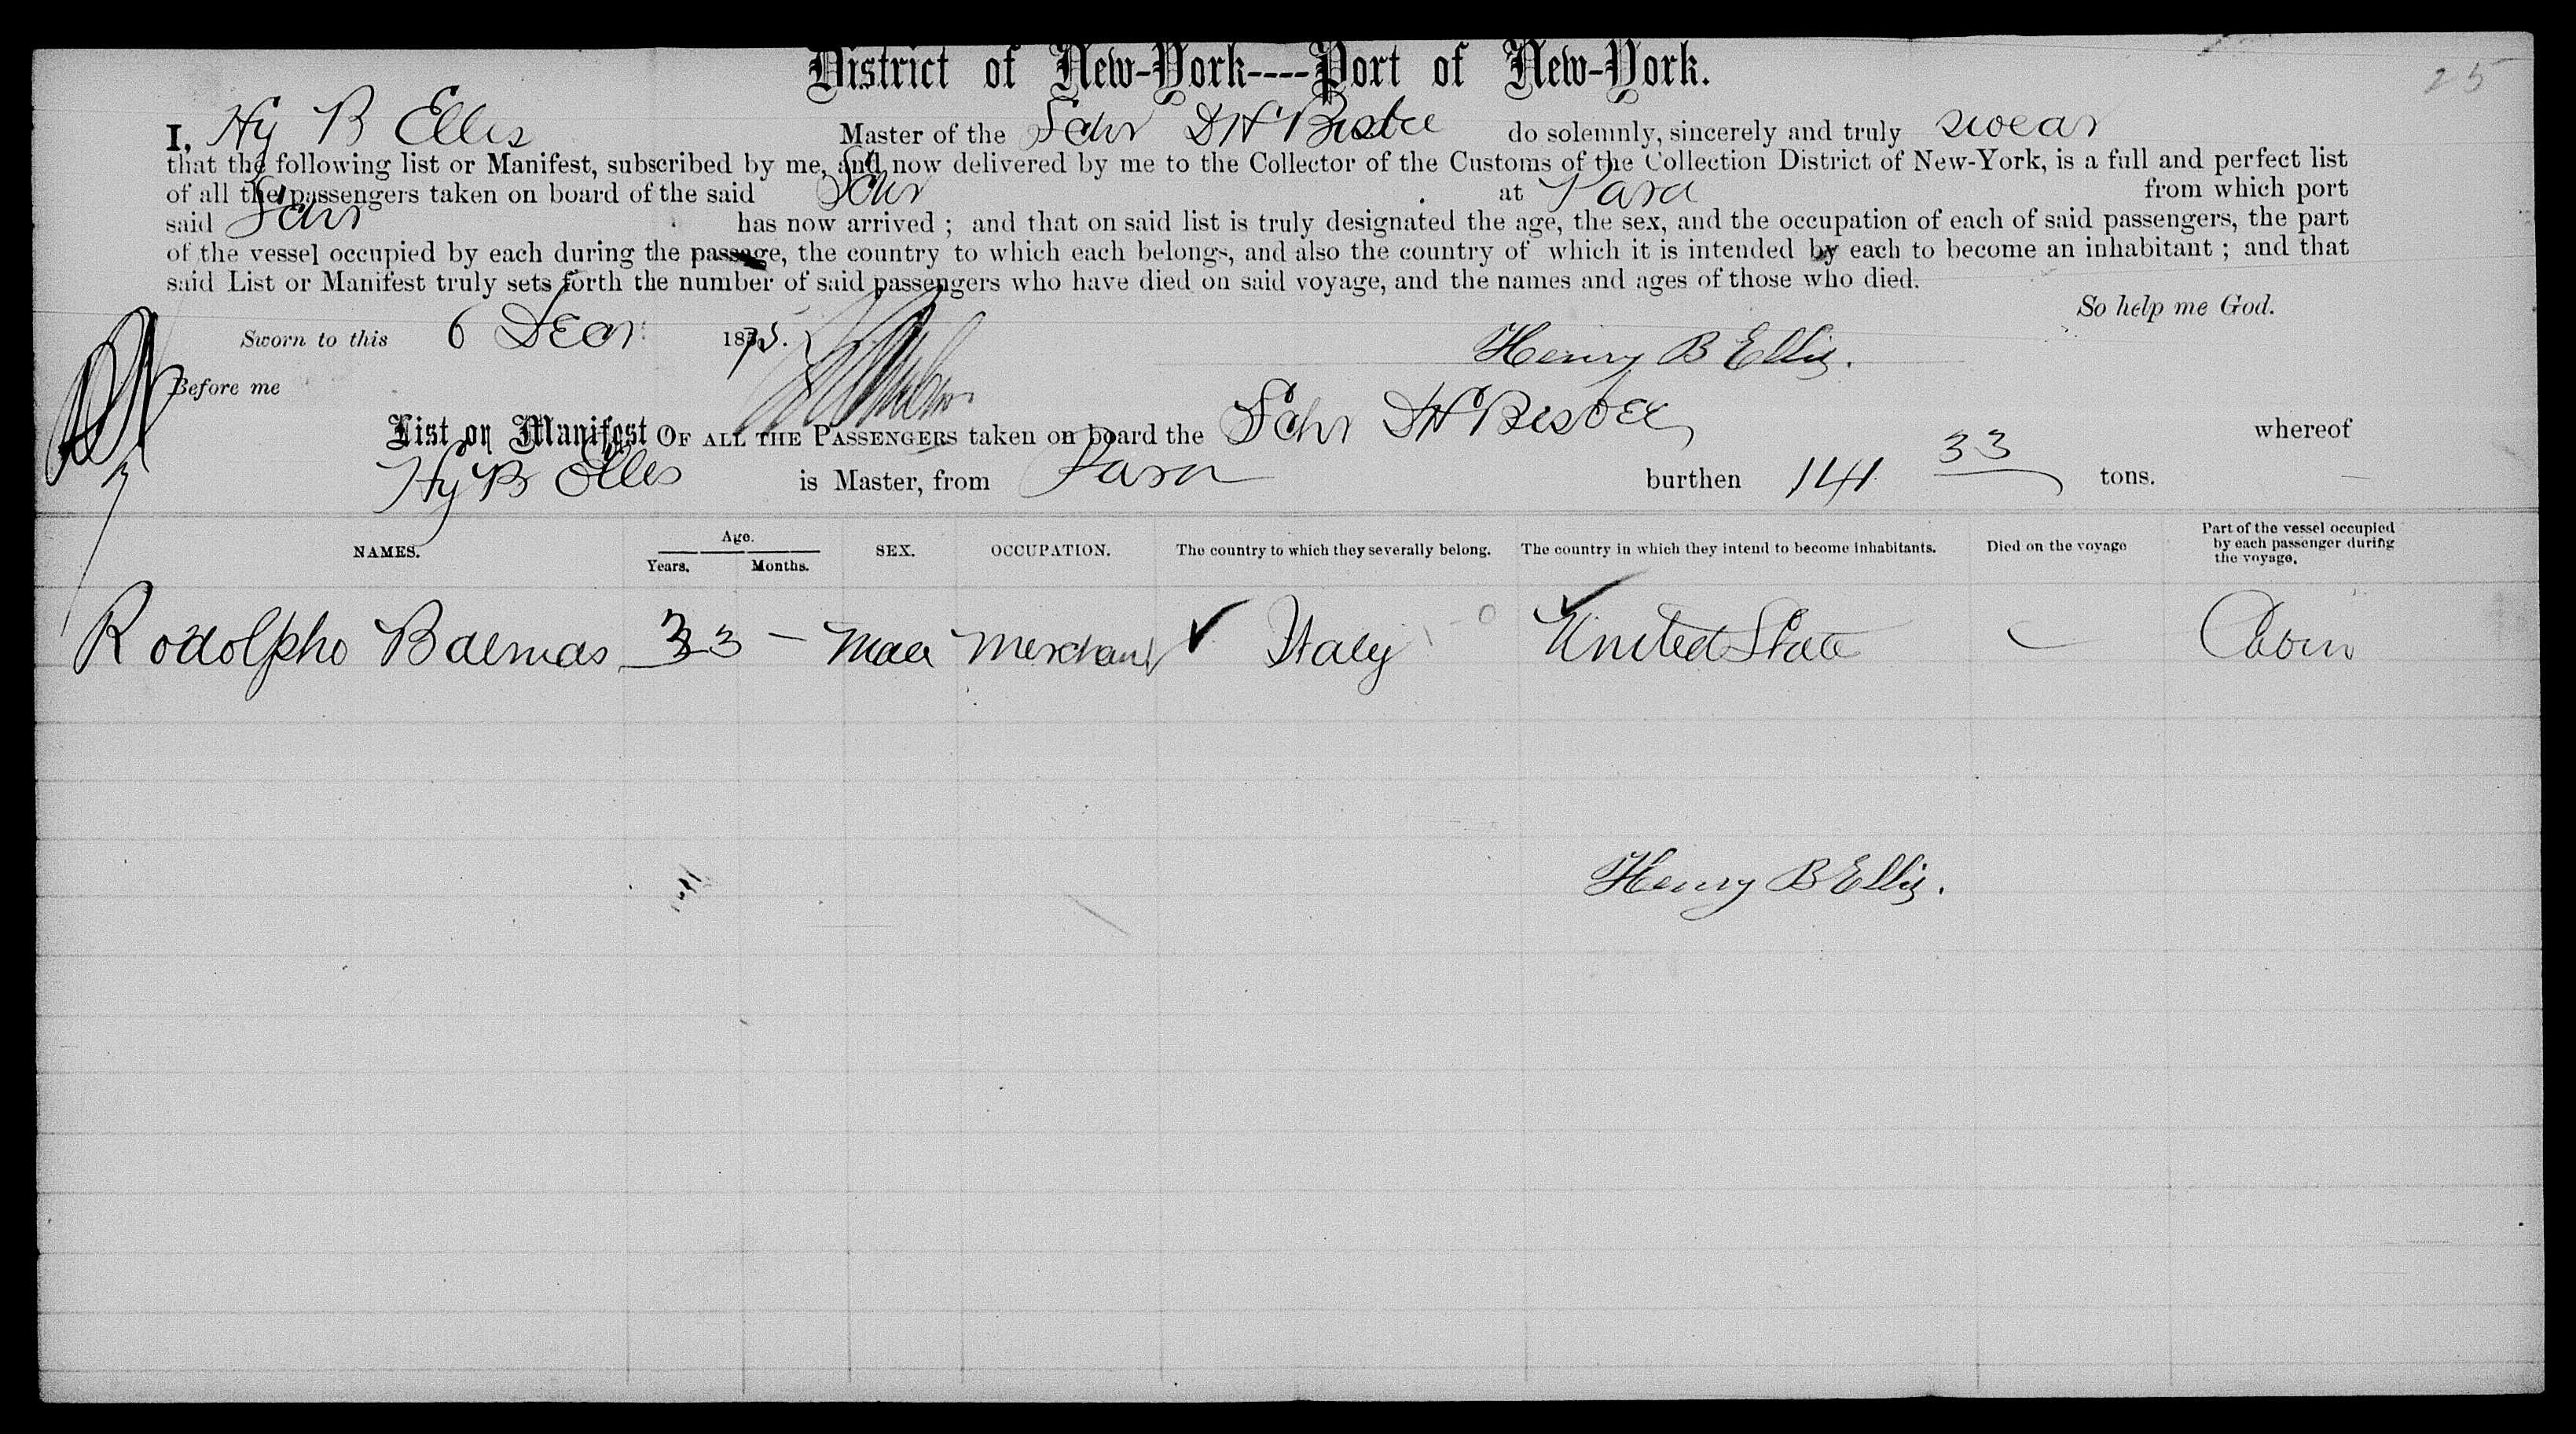 District of New-York----Port of New-York.
25
I, Hy B Ellis Master of the Schr D H Bisbee do solemnly, sincerely and truly swear
that the following list or Manifest, subscribed by me, and now delivered by me to the Collector of the Customs of the Collection District of New-York, is a full and perfect list
of all the passengers taken on board of the said Schr at Para from which port
said Schr has now arrived ; and that on said list is truly designated the age, the sex, and the occupation of each of said passengers, the part
of the vessel occupied by each during the passage, the country to which each belongs, and also the country of which it is intended by each to become an inhabitant ; and that
said List or Manifest truly sets forth the number of said passengers who have died on said voyage, and the names and ages of those who died.
So help me God.
Sworn to this 6 Decr 1875.
Henry B Ellis.
Before me
List or Manifest OF ALL THE PASSENGERS taken on board the Schr D H Bisbee whereof
Hy B Ellis is Master, from Para burthen 141 33 tons.
NAMES. Age. Years. Months. SEX. OCCUPATION. The country to which they severally belong. The country in which they intend to become inhabitants. Died on the voyage Part of the vessel occupied by each passenger during the voyage.
Rodolpho Baemas 33 — Male Merchant ✓ Italy United State — Cabin
Henry B Ellis.